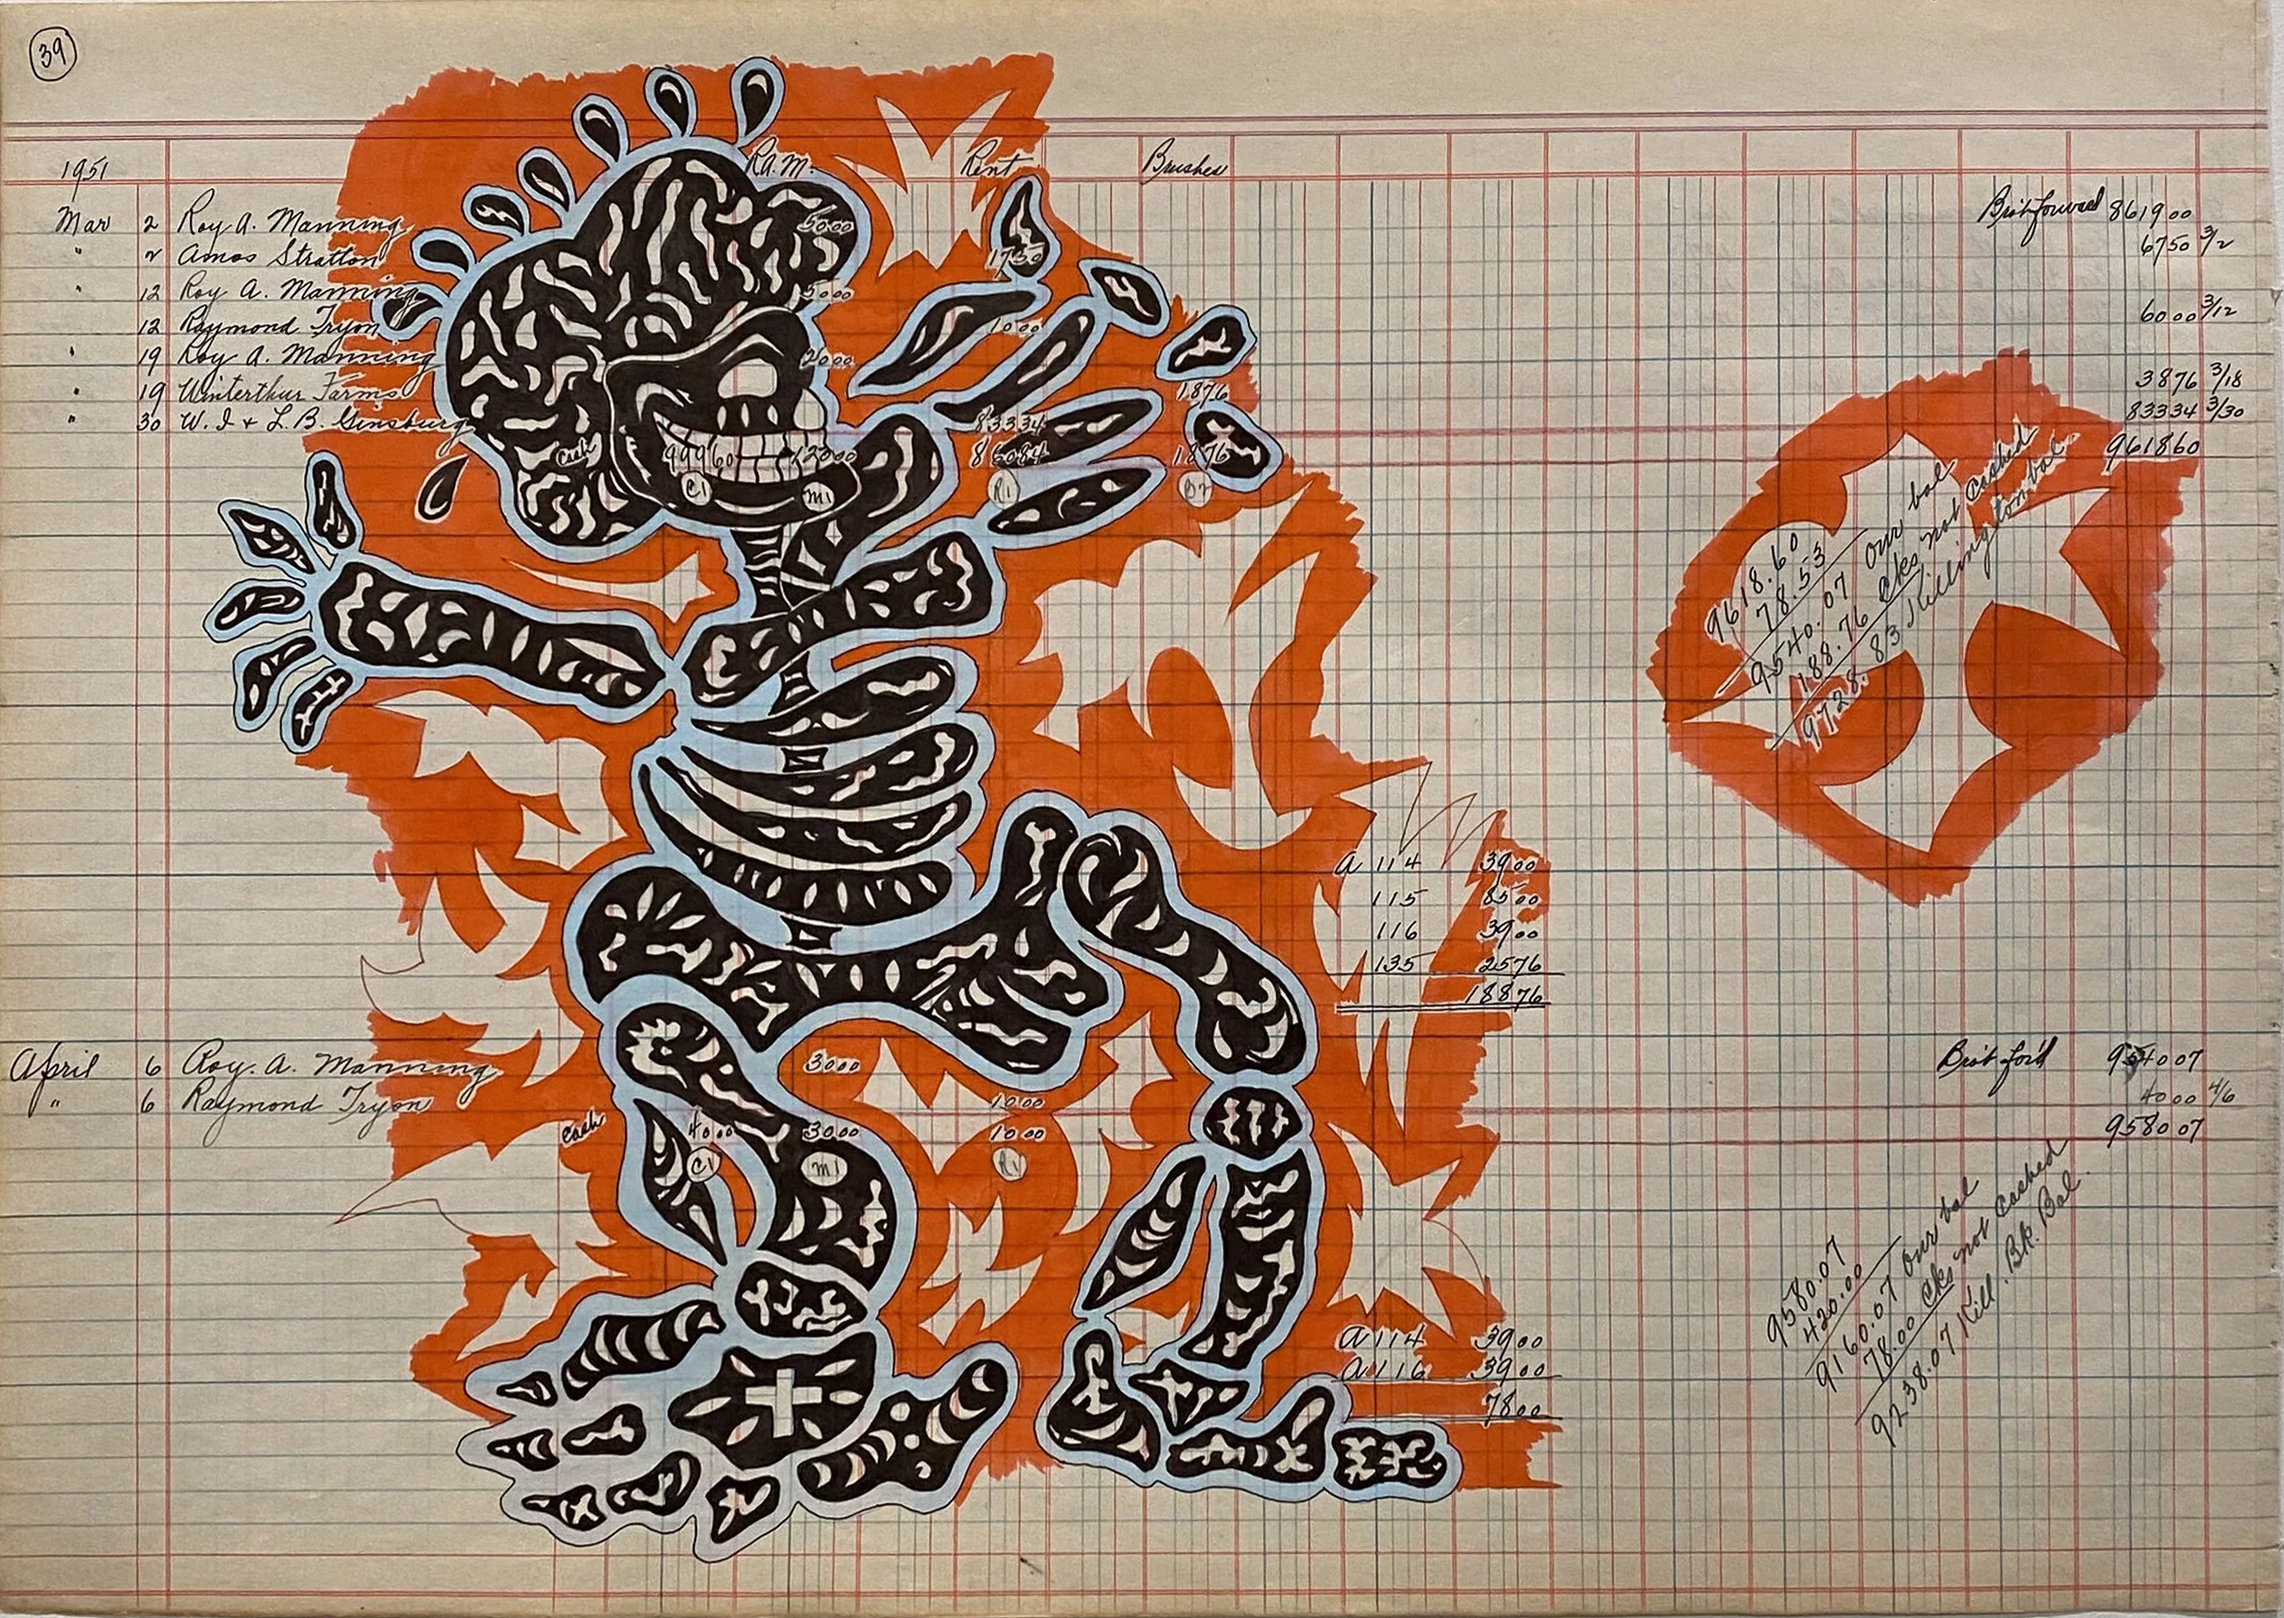 39
1951 R.A.M. Rent Brushes
Mar 2 Roy A. Manning 50.00 Bro't forward 8619 00
" 2 Amos Stratton 17 50 67 50 3/2
" 12 Roy A. Manning 50 00
12 Raymond Tryon 10 00 60 00 3/12
" 19 Roy A. Manning 20 00
" 19 Winterthur Farms 18 76 38 76 3/18
" 30 W. I & L. B. Ginsburg 833 34 833 34 3/30
Cash 999 60 120 00 860 84 18 76 9618 60
C1 M1 R1 B2
9618.60
78.53
9540.07 Our bal
188.76 Cks not cashed
9728.83 Killington bal
A 114 39 00
115 85 00
116 39 00
135 25 76
188 76
April 6 Roy. A. Manning 30 00 Bro't for'd 9540 07
" 6 Raymond Tryon 10 00 40 00 4/6
Cash 40 00 30 00 10 00 9580 07
C1 M1 R1
9580.07
420.00
9160.07 Our bal
78.00 Cks not Cashed
9238.07 Kill. Bk. Bal.
A 114 39 00
A 116 39 00
78 00